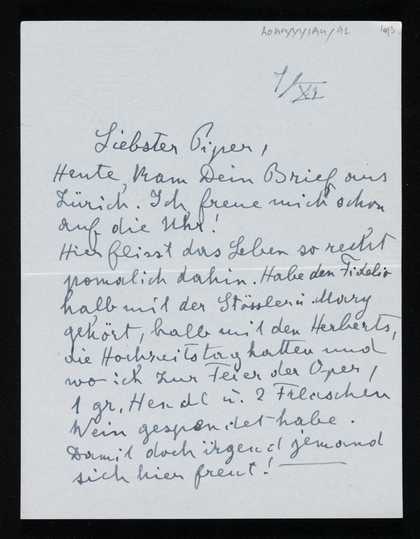 1/XI
Liebster Piper,
Heute kam Dein Brief aus
Zürich. Ich freue mich schon
auf die Uhr!
Hier fliesst das Leben so recht
pomalich dahin. Habe den Fidelio
halb mit der Stössleri Mary
gehört, halb mit den Herberts,
die Hochzeitstag hatten und
wo ich zur Feier der Oper,
1 gr. Hendl u. 2 Flaschen
Wein gespendet habe.
Damit doch irgend jemand
sich hier freut!